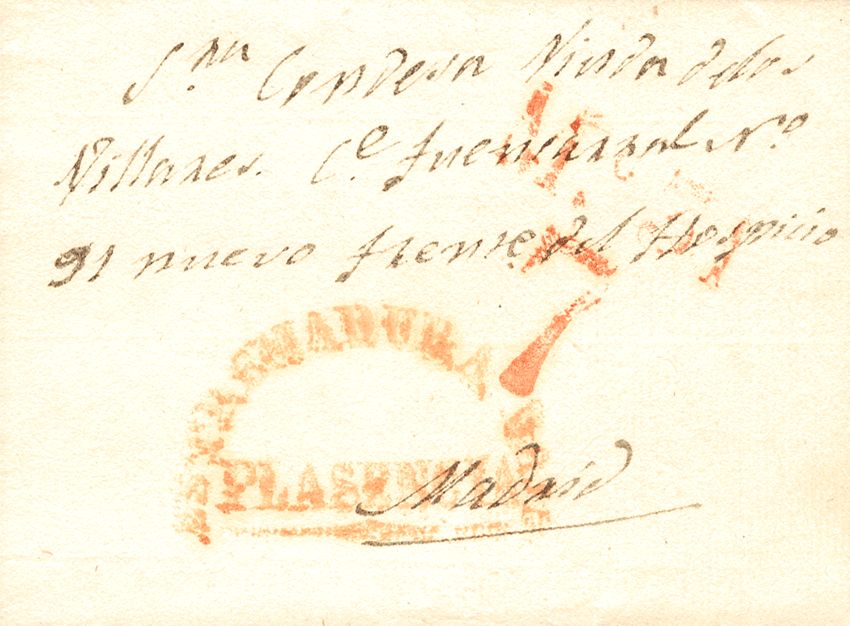 S.ra Condesa Viuda de los
Villares. C.e fuencarral N.o
91 nuevo frente del Hospicio
ESTREMADURA
PLASENCIA
Madrid